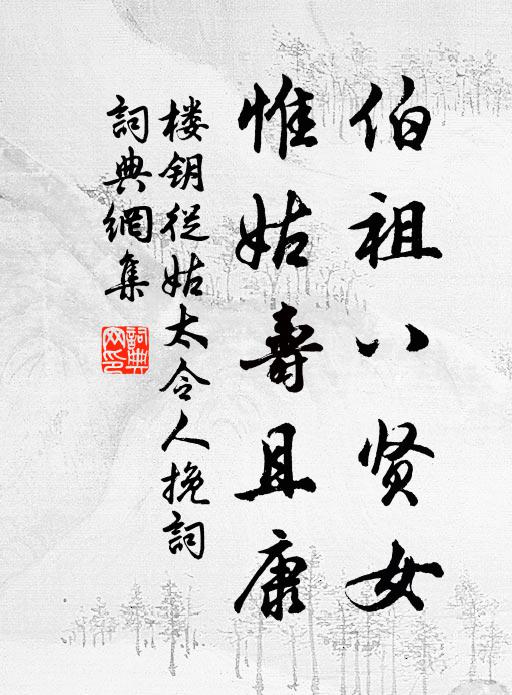 伯祖八贤女
惟姑壽且康
楼钥從姑太令人挽詞
詞典網集
詞典网印